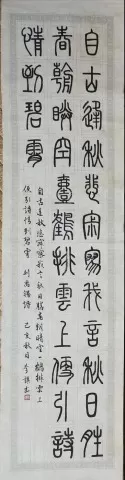 自古逢秋悲寂寥我言秋日勝
春朝晴空壹鶴排雲上便引詩
情到碧霄
自古逢秋悲寂寥我言秋日勝春朝晴空一鶴排雲上
便引詩情到碧霄 劉禹錫詩 己亥秋日 李